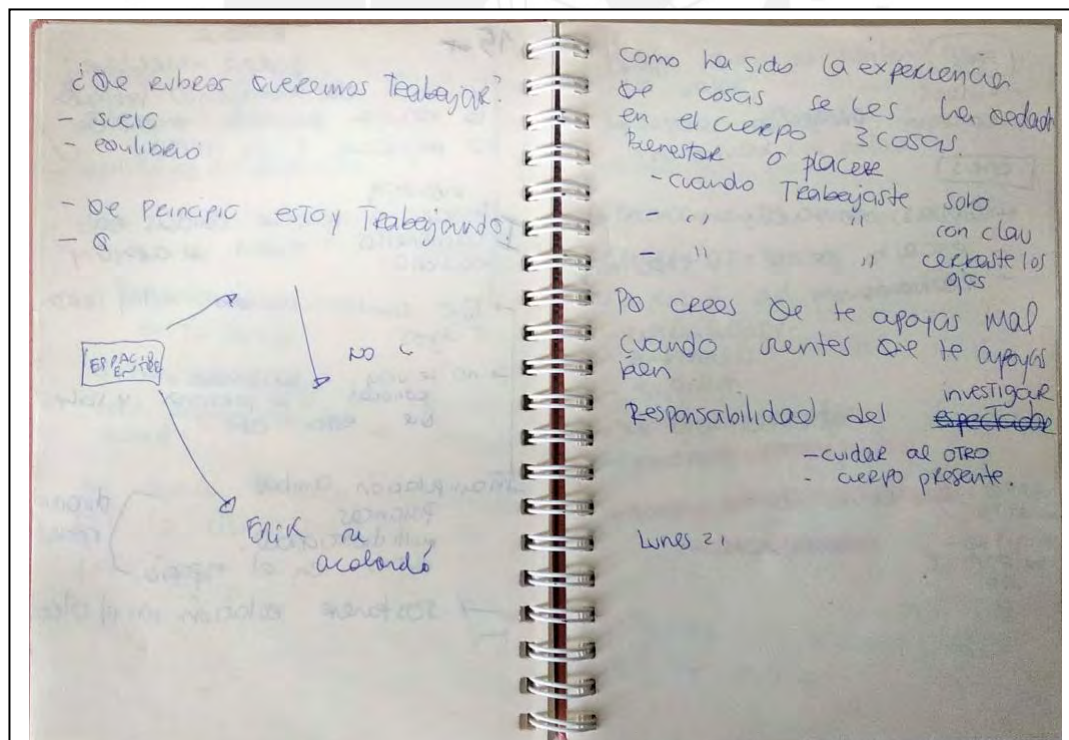 ¿Que rubros queremos Trabajar?
- suelo
- equilibrio
- De principio estoy Trabajando
- Q
ESPACIO
ENTRE
NO
Erik me
acalondó
como ha sido la experiencia
De cosas se les ha
en el cuerpo 3 cosas
Bienestar o placer
- cuando Trabajaste solo
- " " con clau
- " " cerraste los
ojos
Po crees Qe te apoyas mal
cuando sientes que te apoyas
bien
investigar
Responsabilidad del espectador
- cuidar al OTRO
- cuerpo presente.
Lunes 21